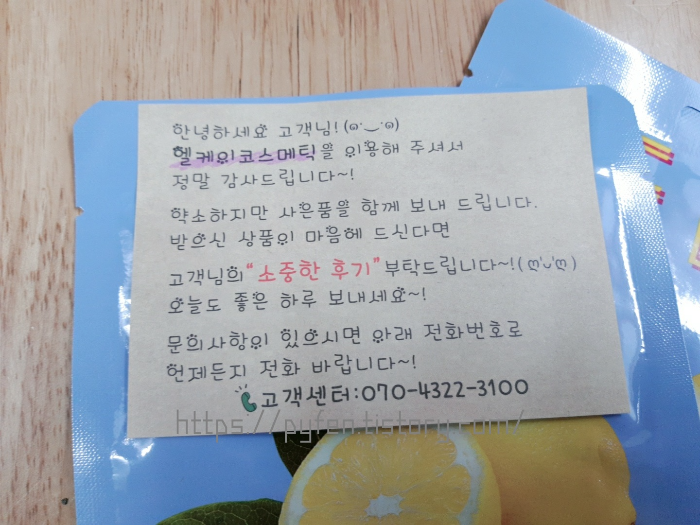 안녕하세요 고객님!(ෆ˙‿˙ෆ)
헬케이코스메틱을 이용해 주셔서
정말 감사드립니다~!
약소하지만 사은품을 함께 보내 드립니다.
받으신 상품이 마음에 드신다면
고객님의 "소중한 후기" 부탁드립니다~!(ღ'ᴗ'ღ)
오늘도 좋은 하루 보내세요~!
문의사항이 있으시면 아래 전화번호로
언제든지 전화 바랍니다~!
고객센터:070-4322-3100
https://pyfen.tistory.com/